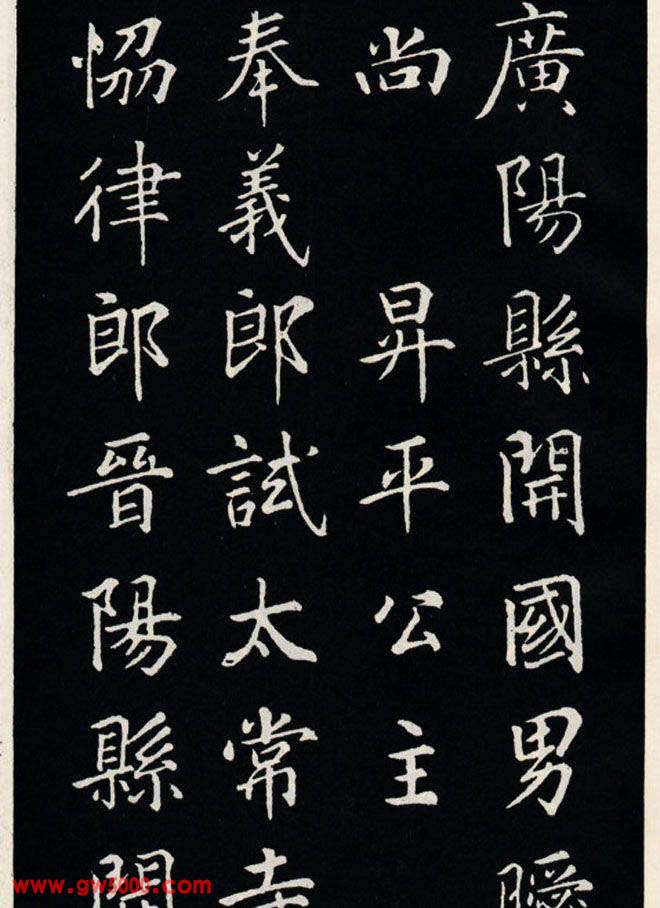 廣陽縣開國男曖
尚 昇平公主
奉義郎試太常寺
恊律郎晉陽縣開
www.gw5000.com